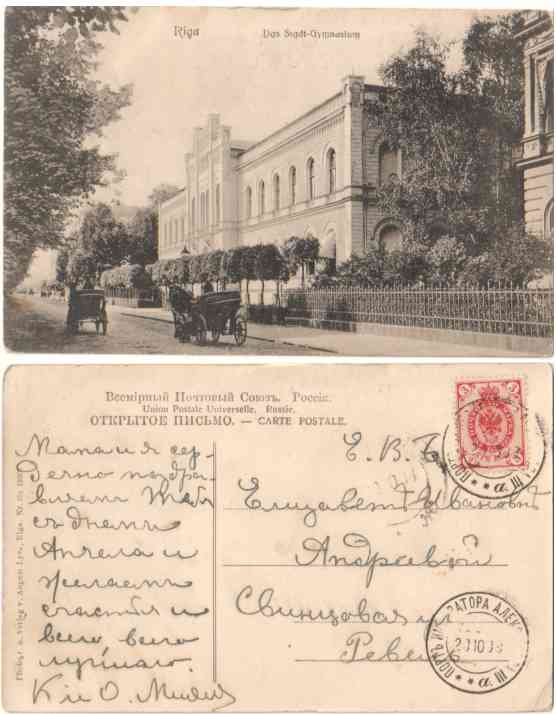 Riga
Das Stadt-Gymnasium
Всемірный Почтовый Союзъ. Россія.
Union Postale Universelle. Russie.
ОТКРЫТОЕ ПИСЬМО. — CARTE POSTALE.
Мама и я сер-
дечно поздра-
вляемъ Тебя
съ днемъ
Ангела и
желаемъ
счастья и
всего, всего
лучшаго.
Е. В. Б.
Елизаветѣ Ивановнѣ
Андреевой
Свинцовая ул.
Ревель
3
3
ПОРТЪ
"а" III
ПОРТЪ ИМПЕРАТОРА АЛЕКС
"а" III